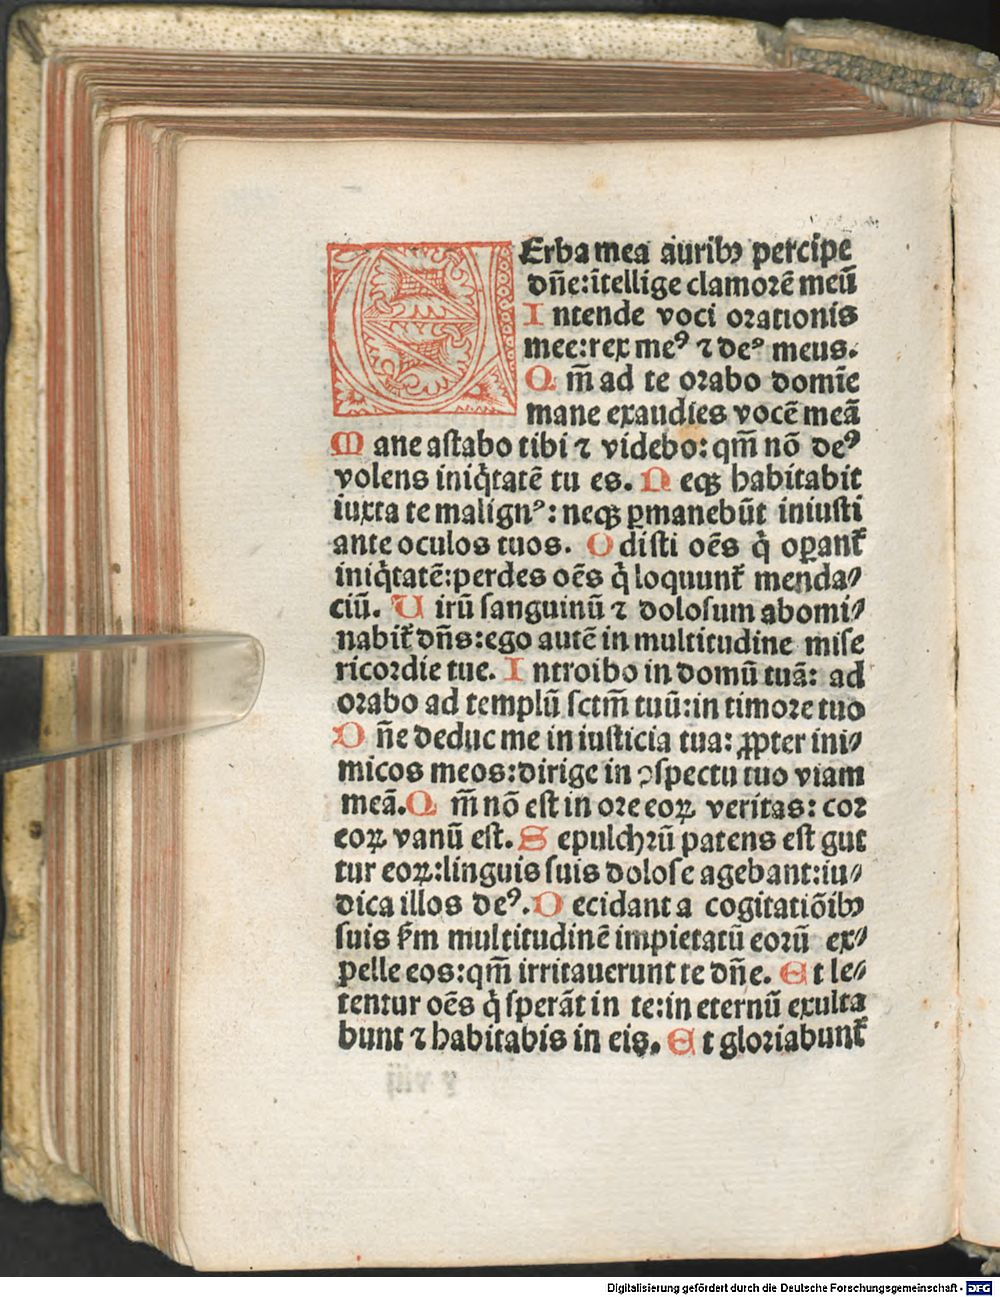 VErba mea auribꝯ percipe
dn̄e:ītellige clamorē meū
Intende voci orationis
mee:rex meꝰ ⁊ deꝰ meus.
Qm̄ ad te orabo domīe
mane exaudies vocē meā
Mane astabo tibi ⁊ videbo: qm̄ nō deꝰ
volens iniq̇tatē tu es. Neqꝫ habitabit
iuxta te malignꝰ: neqꝫ ꝑmanebūt iniusti
ante oculos tuos. Odisti oēs q̇ oꝑant᷑
iniq̇tatē:perdes oēs q̇ loquunt᷑ menda⸗
ciū. Uirū sanguinū ⁊ dolosum abomi⸗
nabit᷑ dn̄s:ego autē in multitudine mise
ricordie tue. Introibo in domū tuā: ad
orabo ad templū sctm̄ tuū:in timore tuo
Dn̄e deduc me in iusticia tua: ꝓpter ini⸗
micos meos:dirige in ꝯspectu tuo viam
meā. Qm̄ nō est in ore eoꝝ veritas: cor
eoꝝ vanū est. Sepulchrū patens est gut
tur eoꝝ:linguis suis dolose agebant:iu⸗
dica illos deꝰ. Decidant a cogitatiōibꝯ
suis ẜm multitudinē impietatū eorū ex⸗
pelle eos:qm̄ irritauerunt te dn̄e. Et le⸗
tentur oēs q̇ sperāt in te:in eternū exulta
bunt ⁊ habitabis in eis. Et gloriabunt᷑
Digitalisierung gefördert durch die Deutsche Forschungsgemeinschaft - DFG